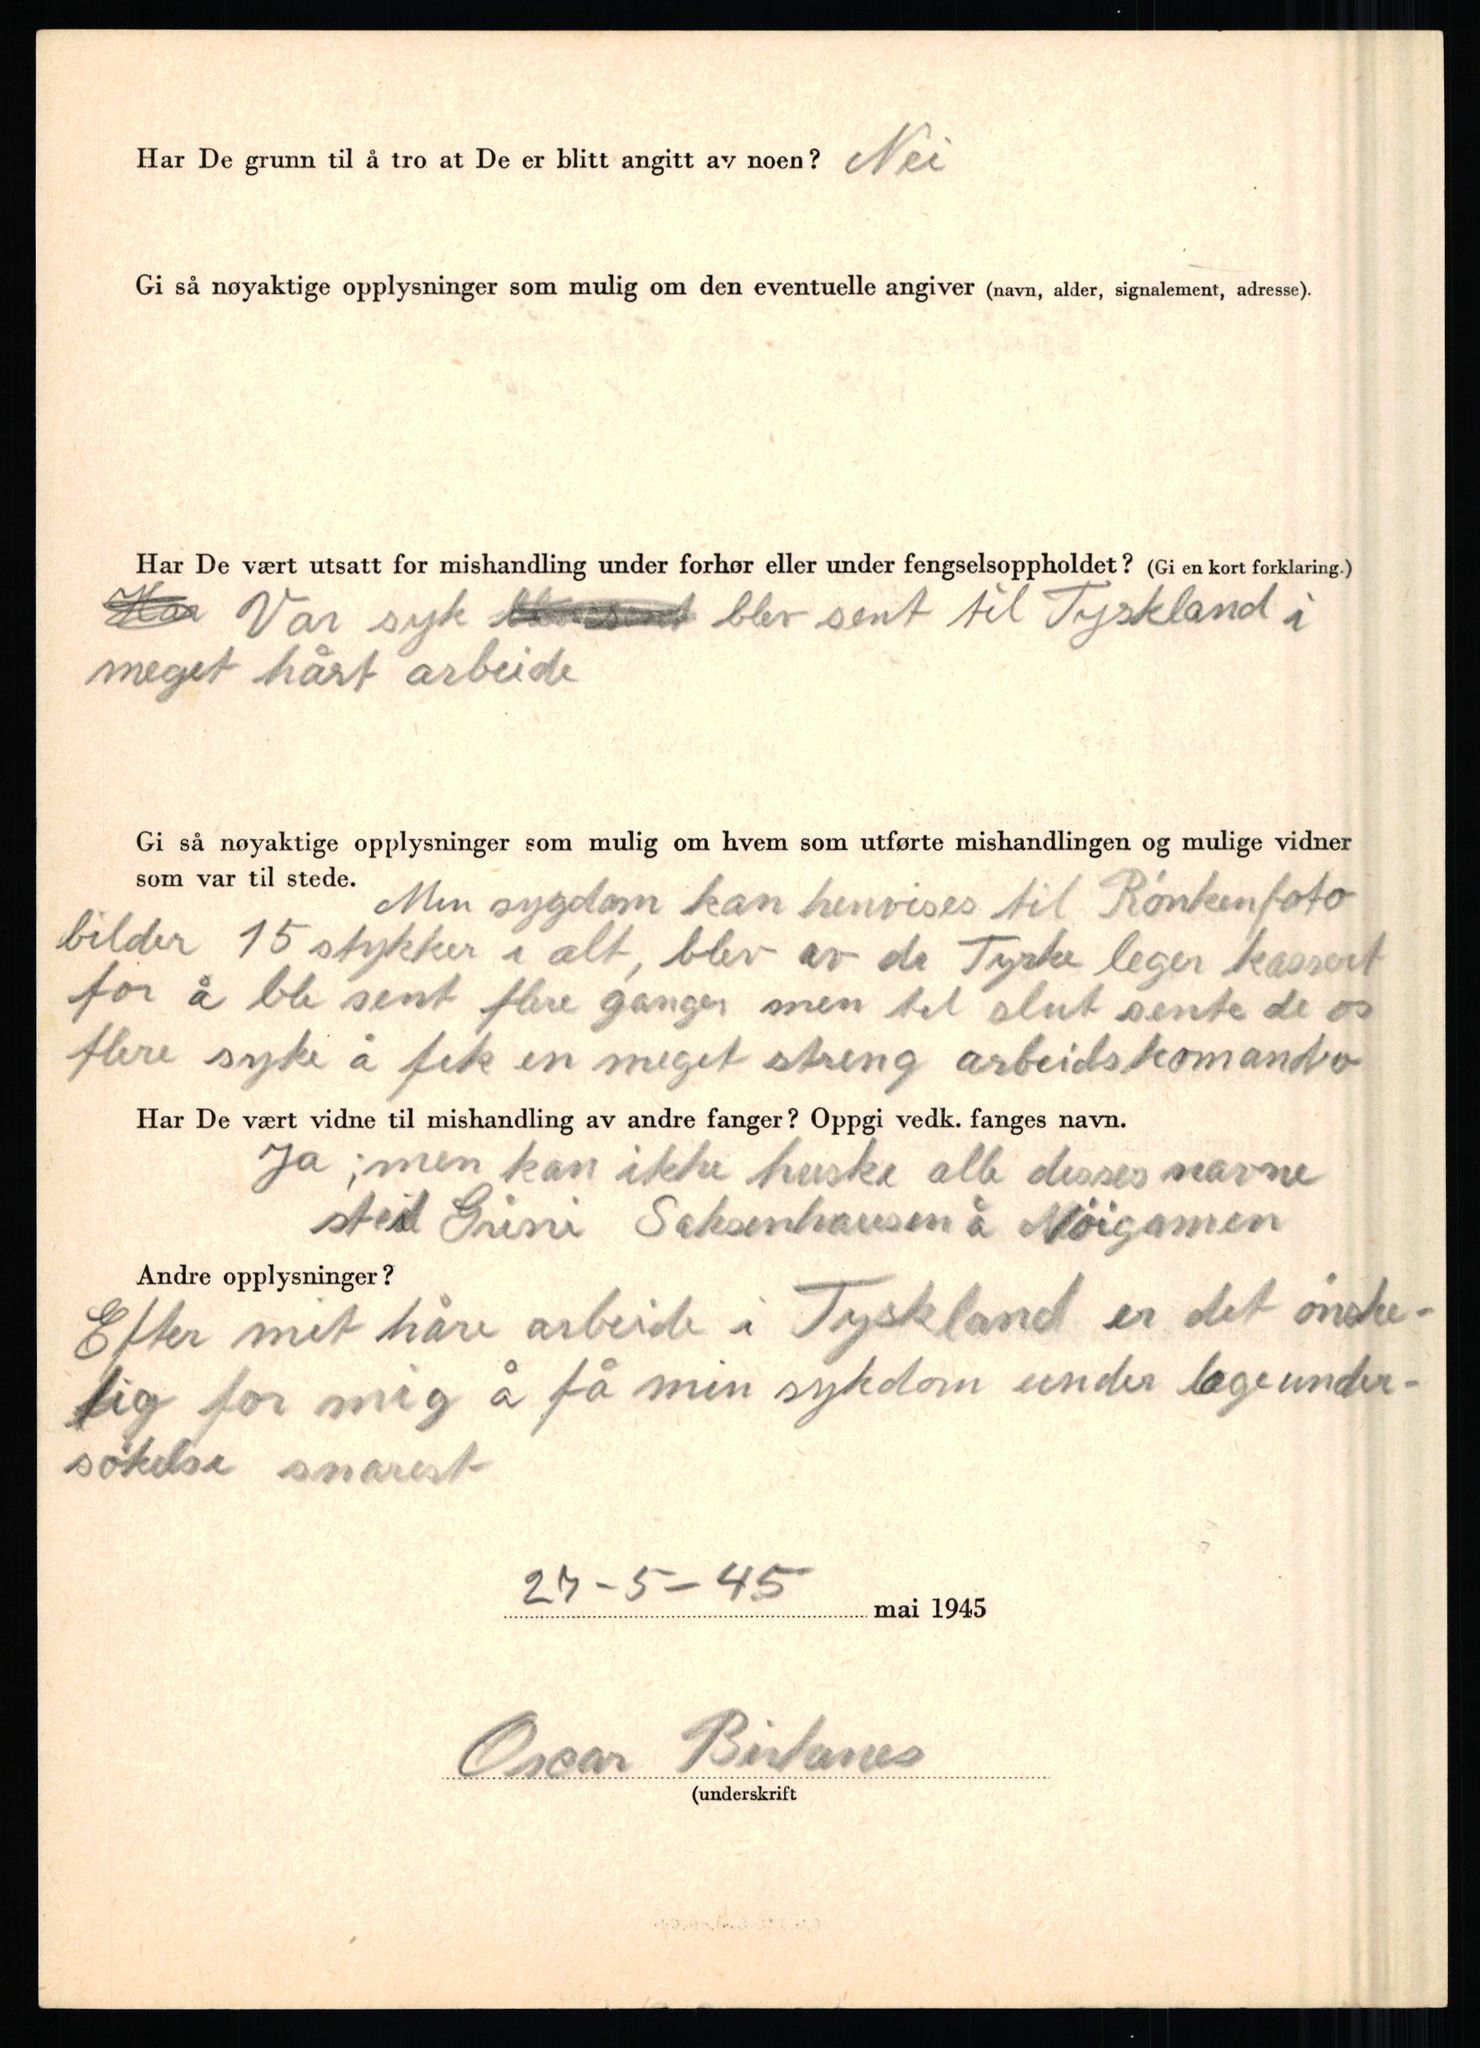 Har De grunn til å tro at De er blitt angitt av noen? Nei
Gi så nøyaktige opplysninger som mulig om den eventuelle angiver (navn, alder, signalement, adresse).
Har De vært utsatt for mishandling under forhør eller under fengselsoppholdet? (Gi en kort forklaring.)
Var syk blev sent til Tyskland i
meget hårt arbeide
Gi så nøyaktige opplysninger som mulig om hvem som utførte mishandlingen og mulige vidner
som var til stede. Min sygdom kan henvises til Rönkenfoto
bilder 15 stykker i alt, blev av de Tyske leger kassert
for å ble sent flere ganger men til slut sente de os
flere syke å fek en meget streng arbeidskomando
Har De vært vidne til mishandling av andre fanger? Oppgi vedk. fanges navn.
Ja ; men kan ikke huske alle disses navne
sted Grini Saksenhausen å Nöigamen
Andre opplysninger?
Efter mit håre arbeide i Tyskland er det önske-
lig for mig å få min sykdom under legeunder-
sökelse snarest
27-5-45 mai 1945
Oscar
(underskrift